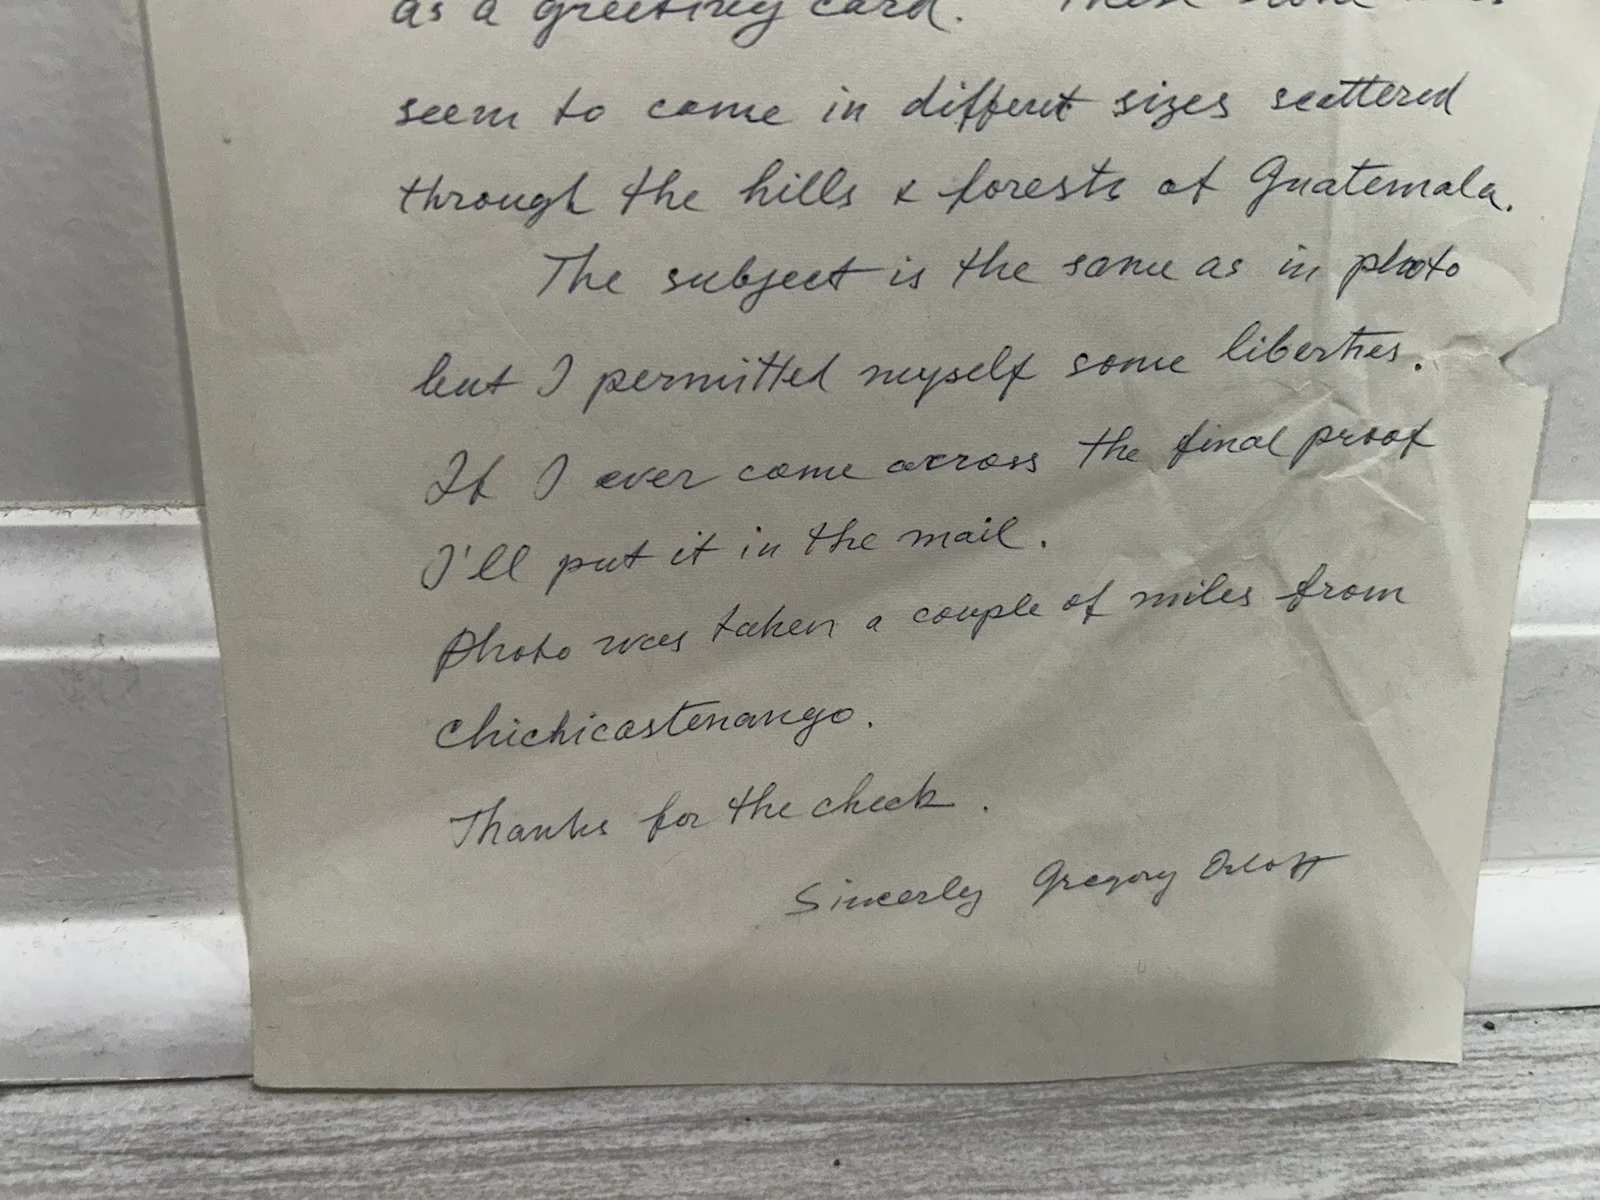 as a greeting card. These
seem to come in different sizes scattered
through the hills & forests of Guatemala.
The subject is the same as in photo
but I permitted myself some liberties.
If I ever come across the final proof
I'll put it in the mail.
Photo was taken a couple of miles from
Chichicastenango.
Thanks for the check.
Sincerly Gregory Orloff